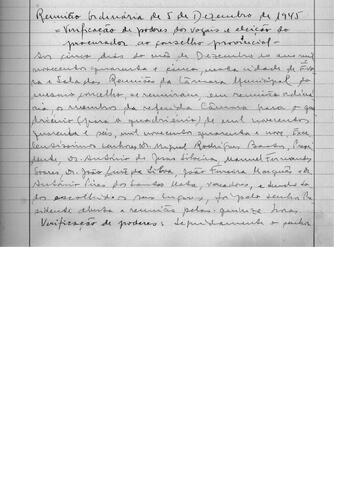 Reunião Ordinária de 5 de Dezembro de 1945
= Verificação de poderes dos vogais e eleição do
procurador ao conselho provincial =
Aos cinco dias do mês de Dezembro do ano mil
novecentos quarenta e cinco, nesta cidade de
e Sala das Reuniões da Câmara Municipal do
mesmo concelho, se reuniram, em reunião ordiná
ria, os membros da referida Câmara para o qua
driénio (para o quadriénio) de mil novecentos
quarenta e seis, mil novecentos quarenta e nove, Exce
lentíssimos senhores Dr. Miguel Rodrigues Bastos, Presi
dente, Dr. António de Jesus Silveira, Manuel Fernandes
Dr. João Luís da Silva, João Ferreira Marquês e Dr.
António Pires dos Santos vereadores, e tendo to
dos escolhido os seus lugares, foi pelo senhor Pre
sidente aberta a reunião pelas quinze horas.
Verificação de poderes: Seguidamente o senhor